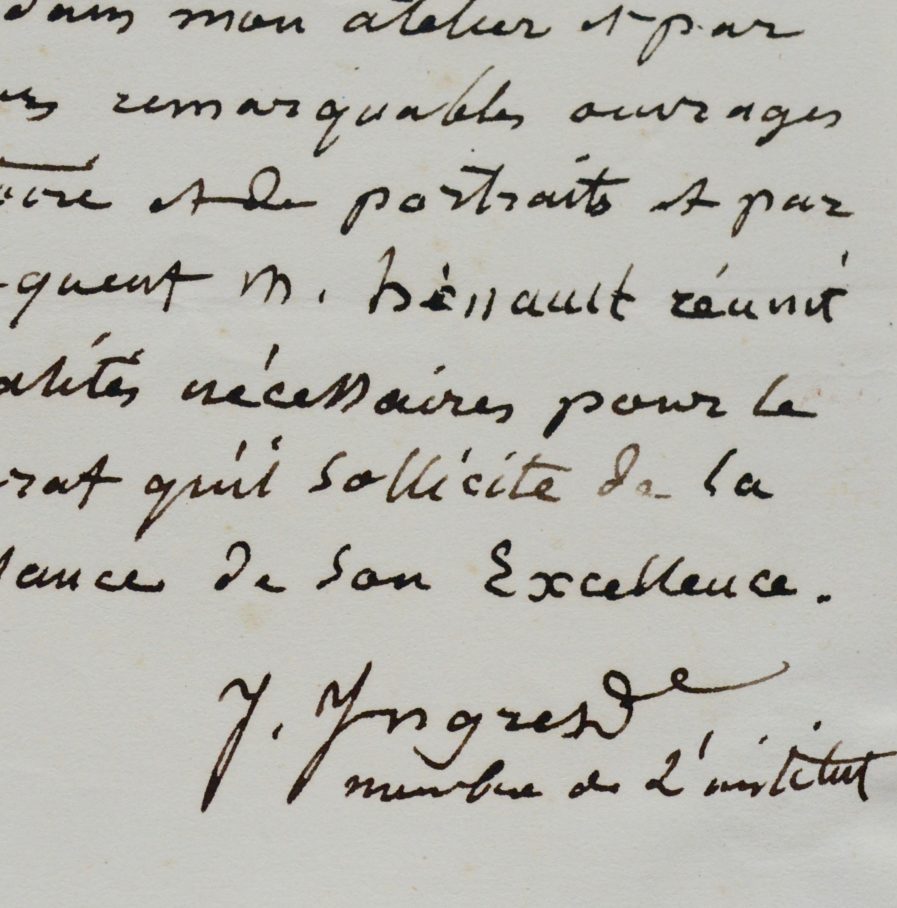 dans mon atelier et par
remarquables ouvrages
oire et de portraits et par
quent M. hénault réunit
alités nécessaires pour le
rat qu'il sollicite de la
lance de Son Excellence.
J. Yngres
membre de L'institut